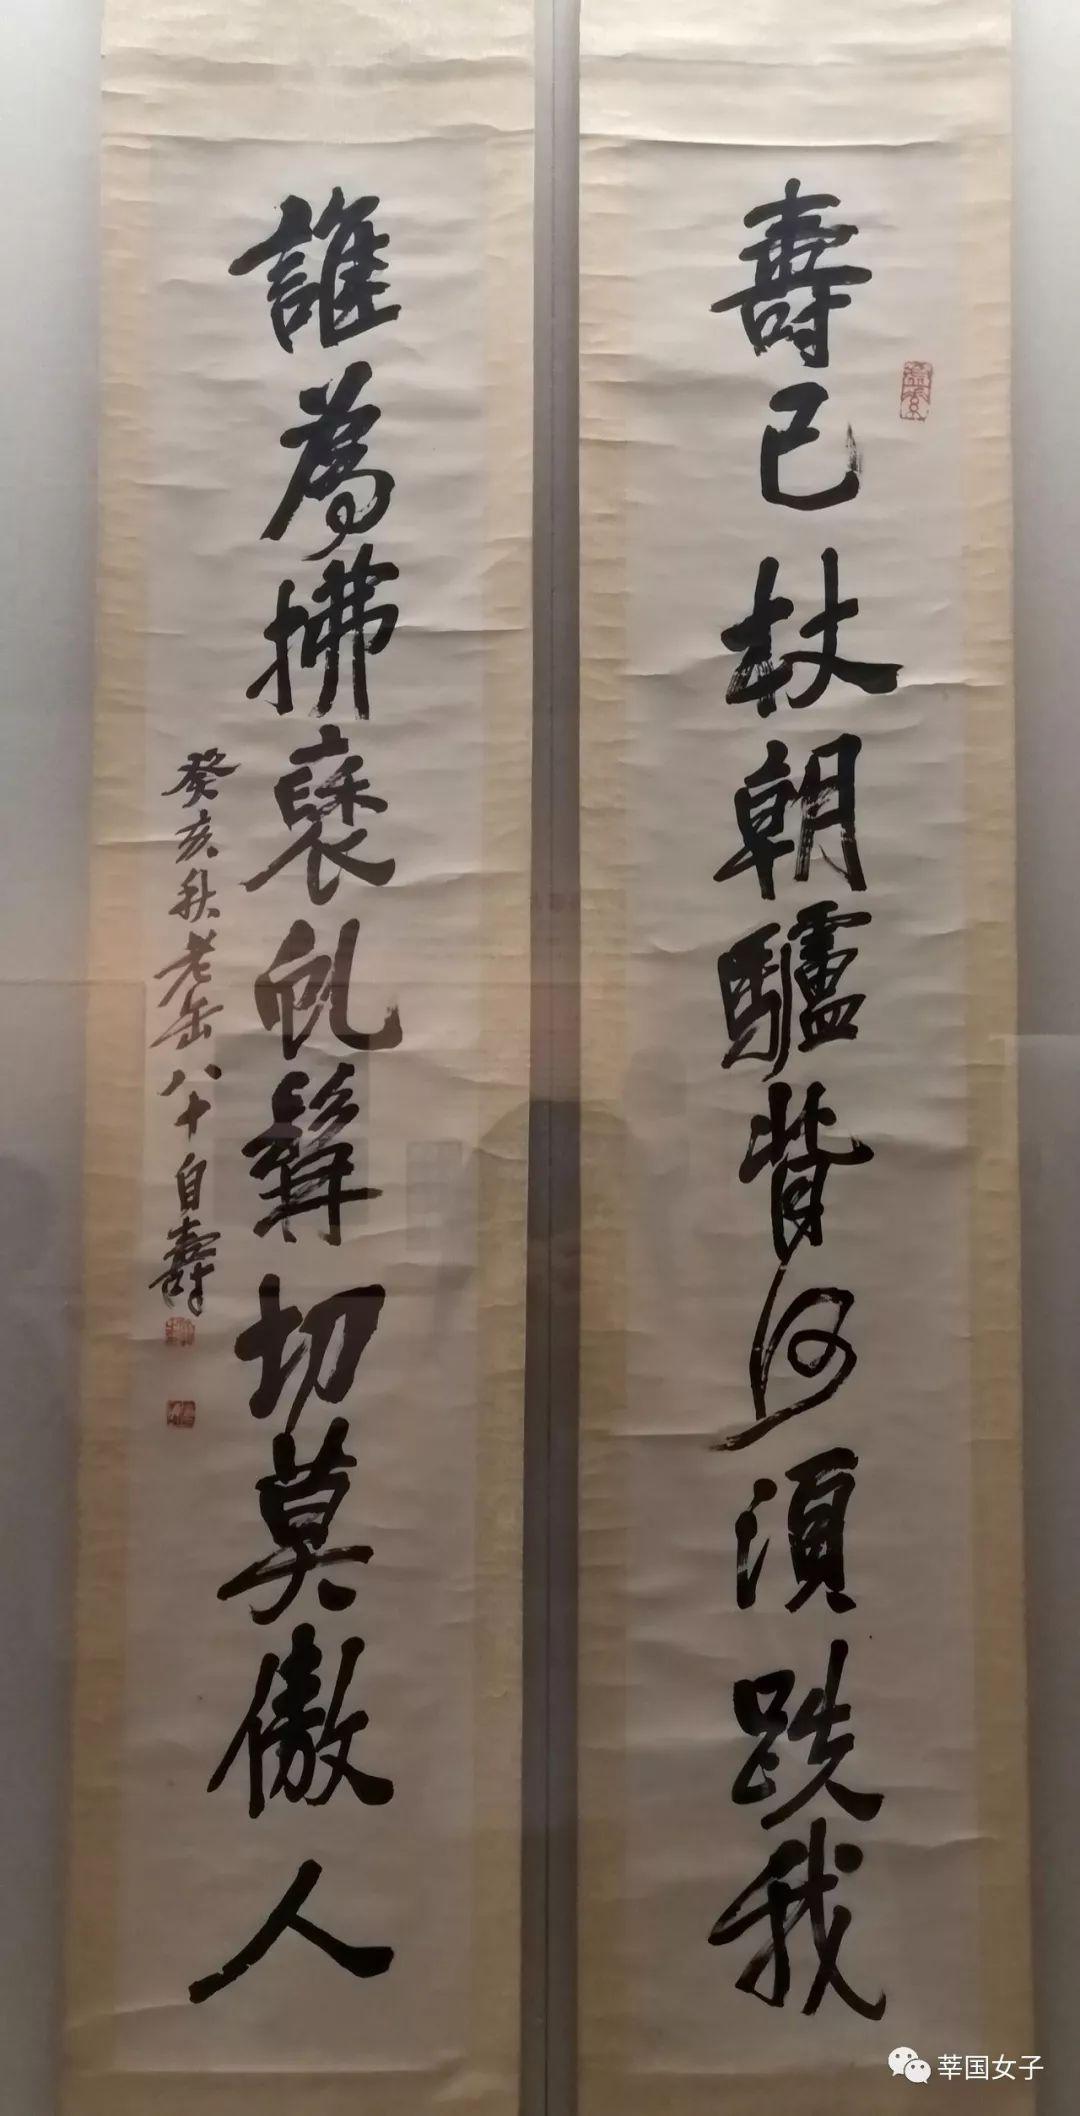 壽已杖朝驢背何須跌我
誰為拂褎虬髯切莫傲人
癸亥秋老缶八十自壽
莘国女子